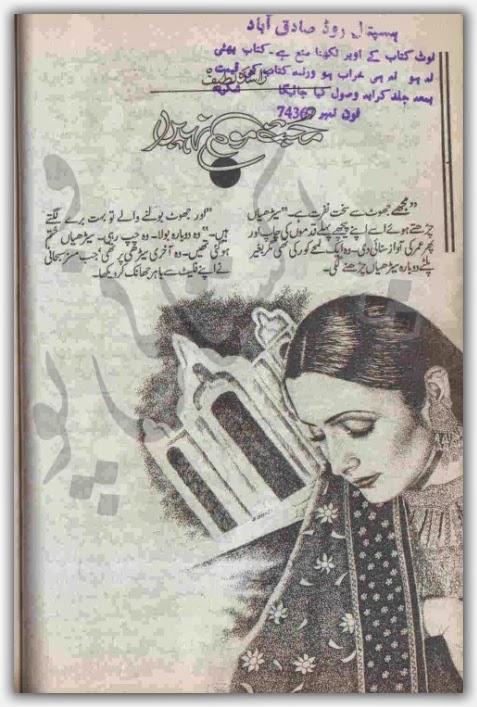 ہسپتال روڈ صادق آباد
نوٹ کتاب کے اوپر لکھنا منع ہے۔ کتاب پھٹی
نہ ہو نہ ہی خراب ہو ورنہ کتاب کی قیمت
بمعہ جلد کرایہ وصول کیا جائیگا شکریہ
فون نمبر 74369
لطیف
محبت
"مجھے جھوٹ سے سخت نفرت ہے۔" سیڑھیاں
چڑھتے ہوئے اسے اپنے پیچھے پہلے قدموں کی چاپ اور
پھر عمر کی آواز سنائی دی۔ وہ ایک لمحے کو رکی تھی مگر بغیر
پلٹے دوبارہ سیڑھیاں چڑھنے لگی۔
"اور جھوٹ بولنے والے تو بہت برے لگتے
ہیں۔" وہ دوبارہ بولا۔ وہ چپ رہی۔ سیڑھیاں ختم
ہو گئی تھیں۔ وہ آخری سیڑھی پر تھی، جب مسز سبحانی
نے اپنے فلیٹ سے باہر جھانک کر دیکھا۔